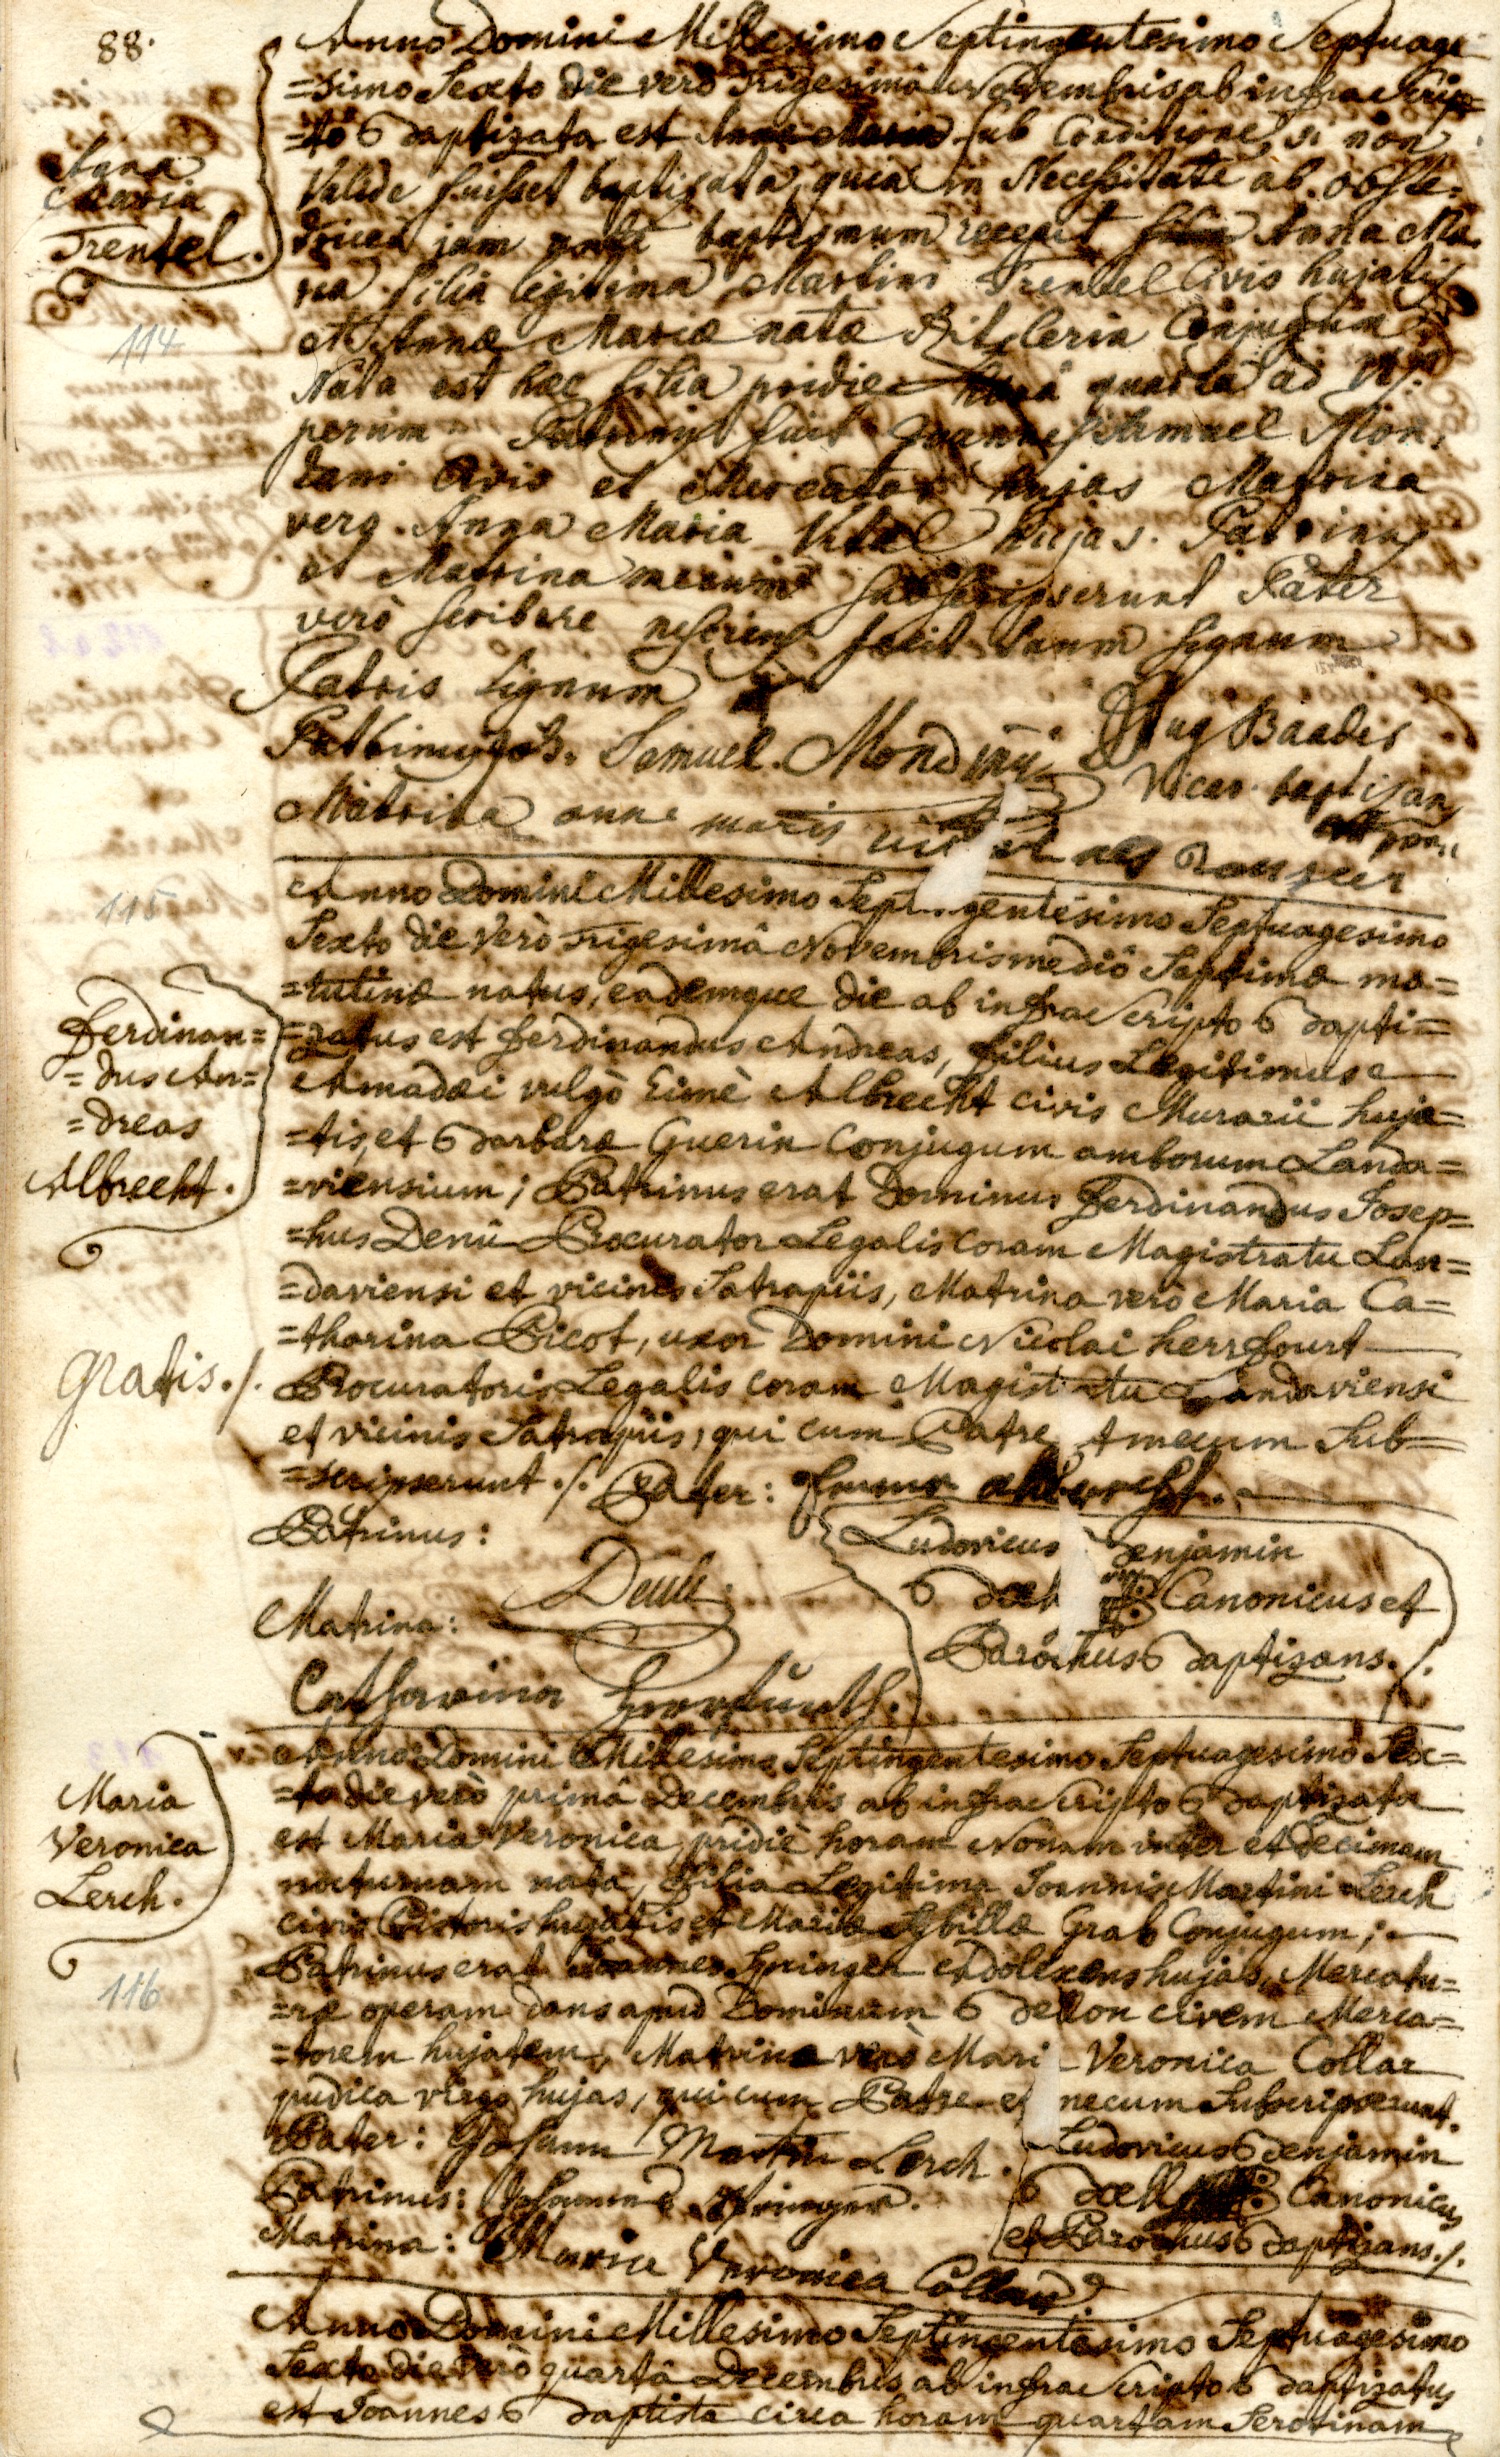 88.
Anno Domini Millesimo Septingentesimo Septuage
=simo Sexto die vero Trigesimâ Novembris ab infra Scrip=
=to Baptizata est Anna Maria sub Conditione, si non
Valide fuisset baptizata, quia in Necessitate ab obste=
tricea jam baptismum recepit Anna Ma
ria filia legitima Martini Trentel Civis hujatis
et Annæ Mariæ natæ Conjugum
Nata est hæc filia pridie horâ quartâ ad Ves
perum Patrinus fuit Joannes Samuel Mon,
dani Civis et Mercator hujas Matrina
vero Anna Maria Vital hujas. Patrinus
et Matrina mecum subscripserunt Pater
verò scribere nesciens fecit suum signum
Anna
Maria
Trentel.
114
Patris Signum
Patrinus Samuel.
Hug Baades
Vicar. baptizans
Matrina anne maris
115
Anno Domini Millesimo Septingentesimo Septuagesimo
Sexto die Verò Trigesimâ Novembris mediô Septimæ ma=
=tutinæ natus, eademque die ab infra Scripto Bapti=
=zatus est Ferdinandus Andreas, filius Legitimus
Amadæi vulgò Eimè Albrecht civis Murarii huja=
=tis, et Barbaræ Guerin Conjugum amborum Landa=
=viensium; Patrinus erat Dominus Ferdinandus Josep=
=hus Denü Procurator Legalis coram Magistratu Lan=
=daviensi et vicinis Satrapiis, Matrina verò Maria Ca=
=tharina Picot, uxor Domini Nicolai herrfourt
Procuratoris Legalis coram Magist tu Landaviensi
et vicinis Satrapiis, qui cum Patre t mecum Sub=
=scripserunt ./. Pater:
Ferdinan=
=dus An=
=dreas
Albrecht.
Gratis ./.
Patrinus:
Matrina:
Catharina
Ludovicus Benjamin
Canonicus et
Parochus Baptizans ./.
Anno Domini Millesimo Septingentesimo Septuagesimo Sex=
=to die verò primâ Decembris ab infra Scripto Baptizata
est Maria Veronica, pridiè horam Nonam inter et Decimam
nocturnam nata, filia Legitima Joannis Martini Lerch
civis Pistoris hujatis et Mariæ Sybillæ Grab Conjugum;
Patrinus erat Joannes Springer Adolescens hujas, Mercatu=
=ræ operam dans apud Dominum Bellon civem Merca=
=torem hujatem, Matrina verò Mari Veronica Collar
pudica virgo hujas, qui cum Patre et mecum Subscripserunt.
Maria
Veronica
Lerch.
116
Pater: Johann Martin Lerch.
Patrinus: Johannes Springer.
Matrina: Maria Veronica Collar
Ludovicus Benjamin
Canonicus
et Parochus Baptizans ./.
Anno Domini Millesimo Septingentesimo Septuagesimo
Sexto die Verò quartâ Decembris ab infra Scripto Baptizatus
est Joannes Baptista circa horam quartam Serotinam